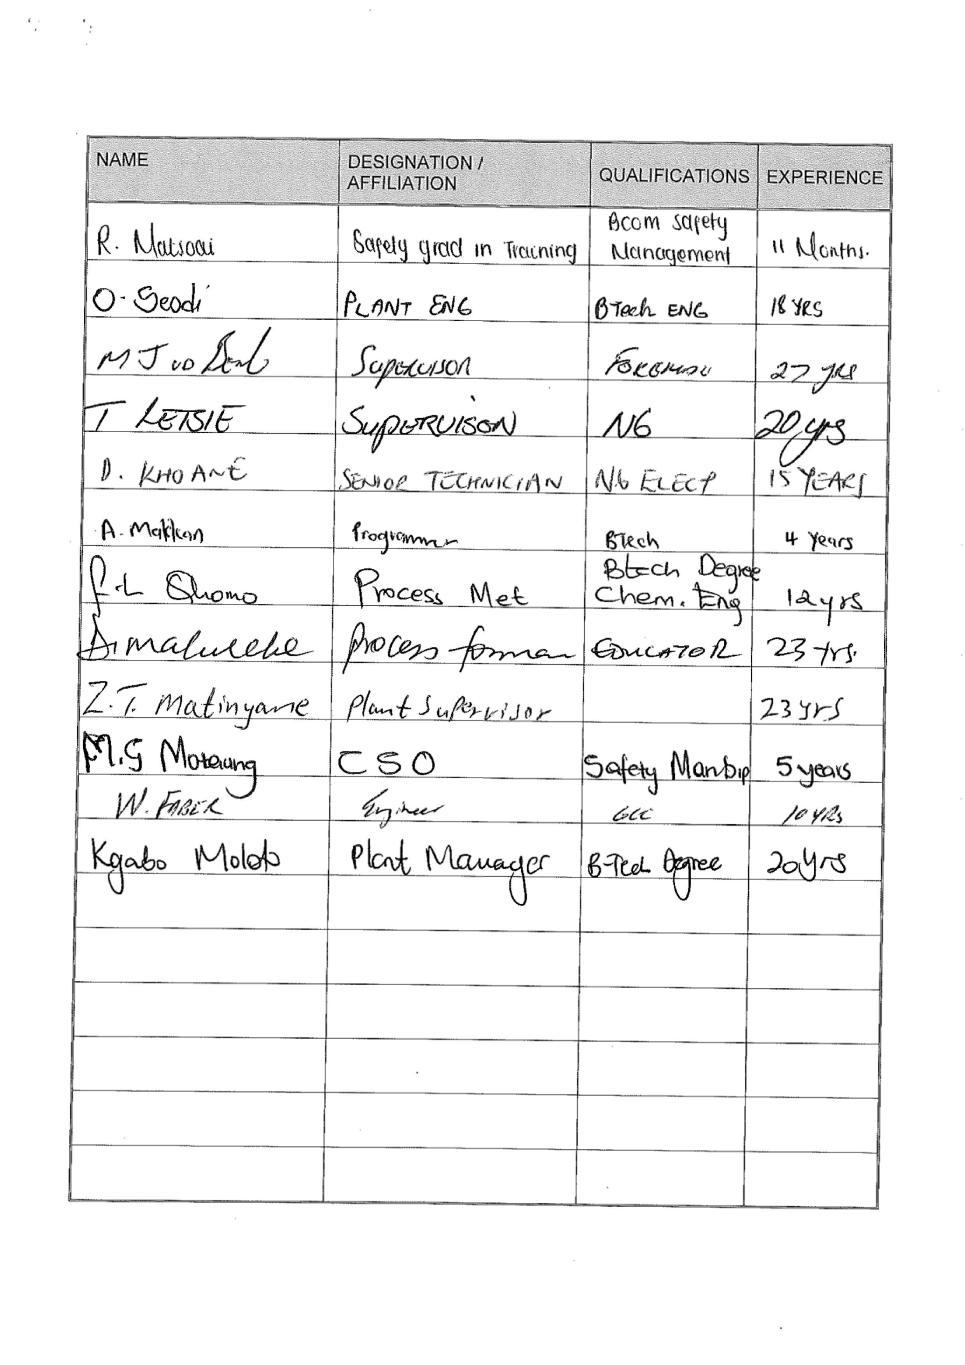 NAME DESIGNATION / AFFILIATION QUALIFICATIONS EXPERIENCE
R. Matsoai Safety grad in Training Bcom Safety Management 11 Months.
O. Seodi PLANT ENG BTech ENG 18 YRS
M J Supervisor Foreman 27 yrs
T LETSIE SUPERVISOR N6 20 yrs
D. KHOANE SENIOR TECHNICIAN N6 ELECT 15 YEARS
A. Programmer BTech 4 Years
Process Met Btech Degree Chem. Eng 12 yrs
Process forman EDUCATOR 23 yrs.
Z.T. Matinyane Plant Supervisor 23 yrs
M.G Motaung CSO Safety 5 years
W. FABER Engineer GCC 10 YRS
Kgabo Moloto Plant Manager B-Tech Degree 20 yrs